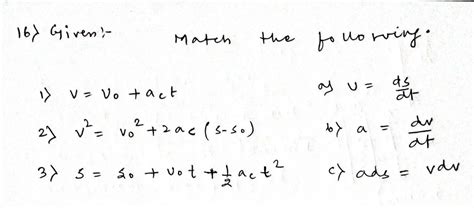 16) Given:- Match the following.
1) v = v₀ + a_c t a) v = ds/dt
2) v² = v₀² + 2 a_c (s - s₀) b) a = dv/dt
3) s = s₀ + v₀t + 1/2 a_c t² c) ads = vdv